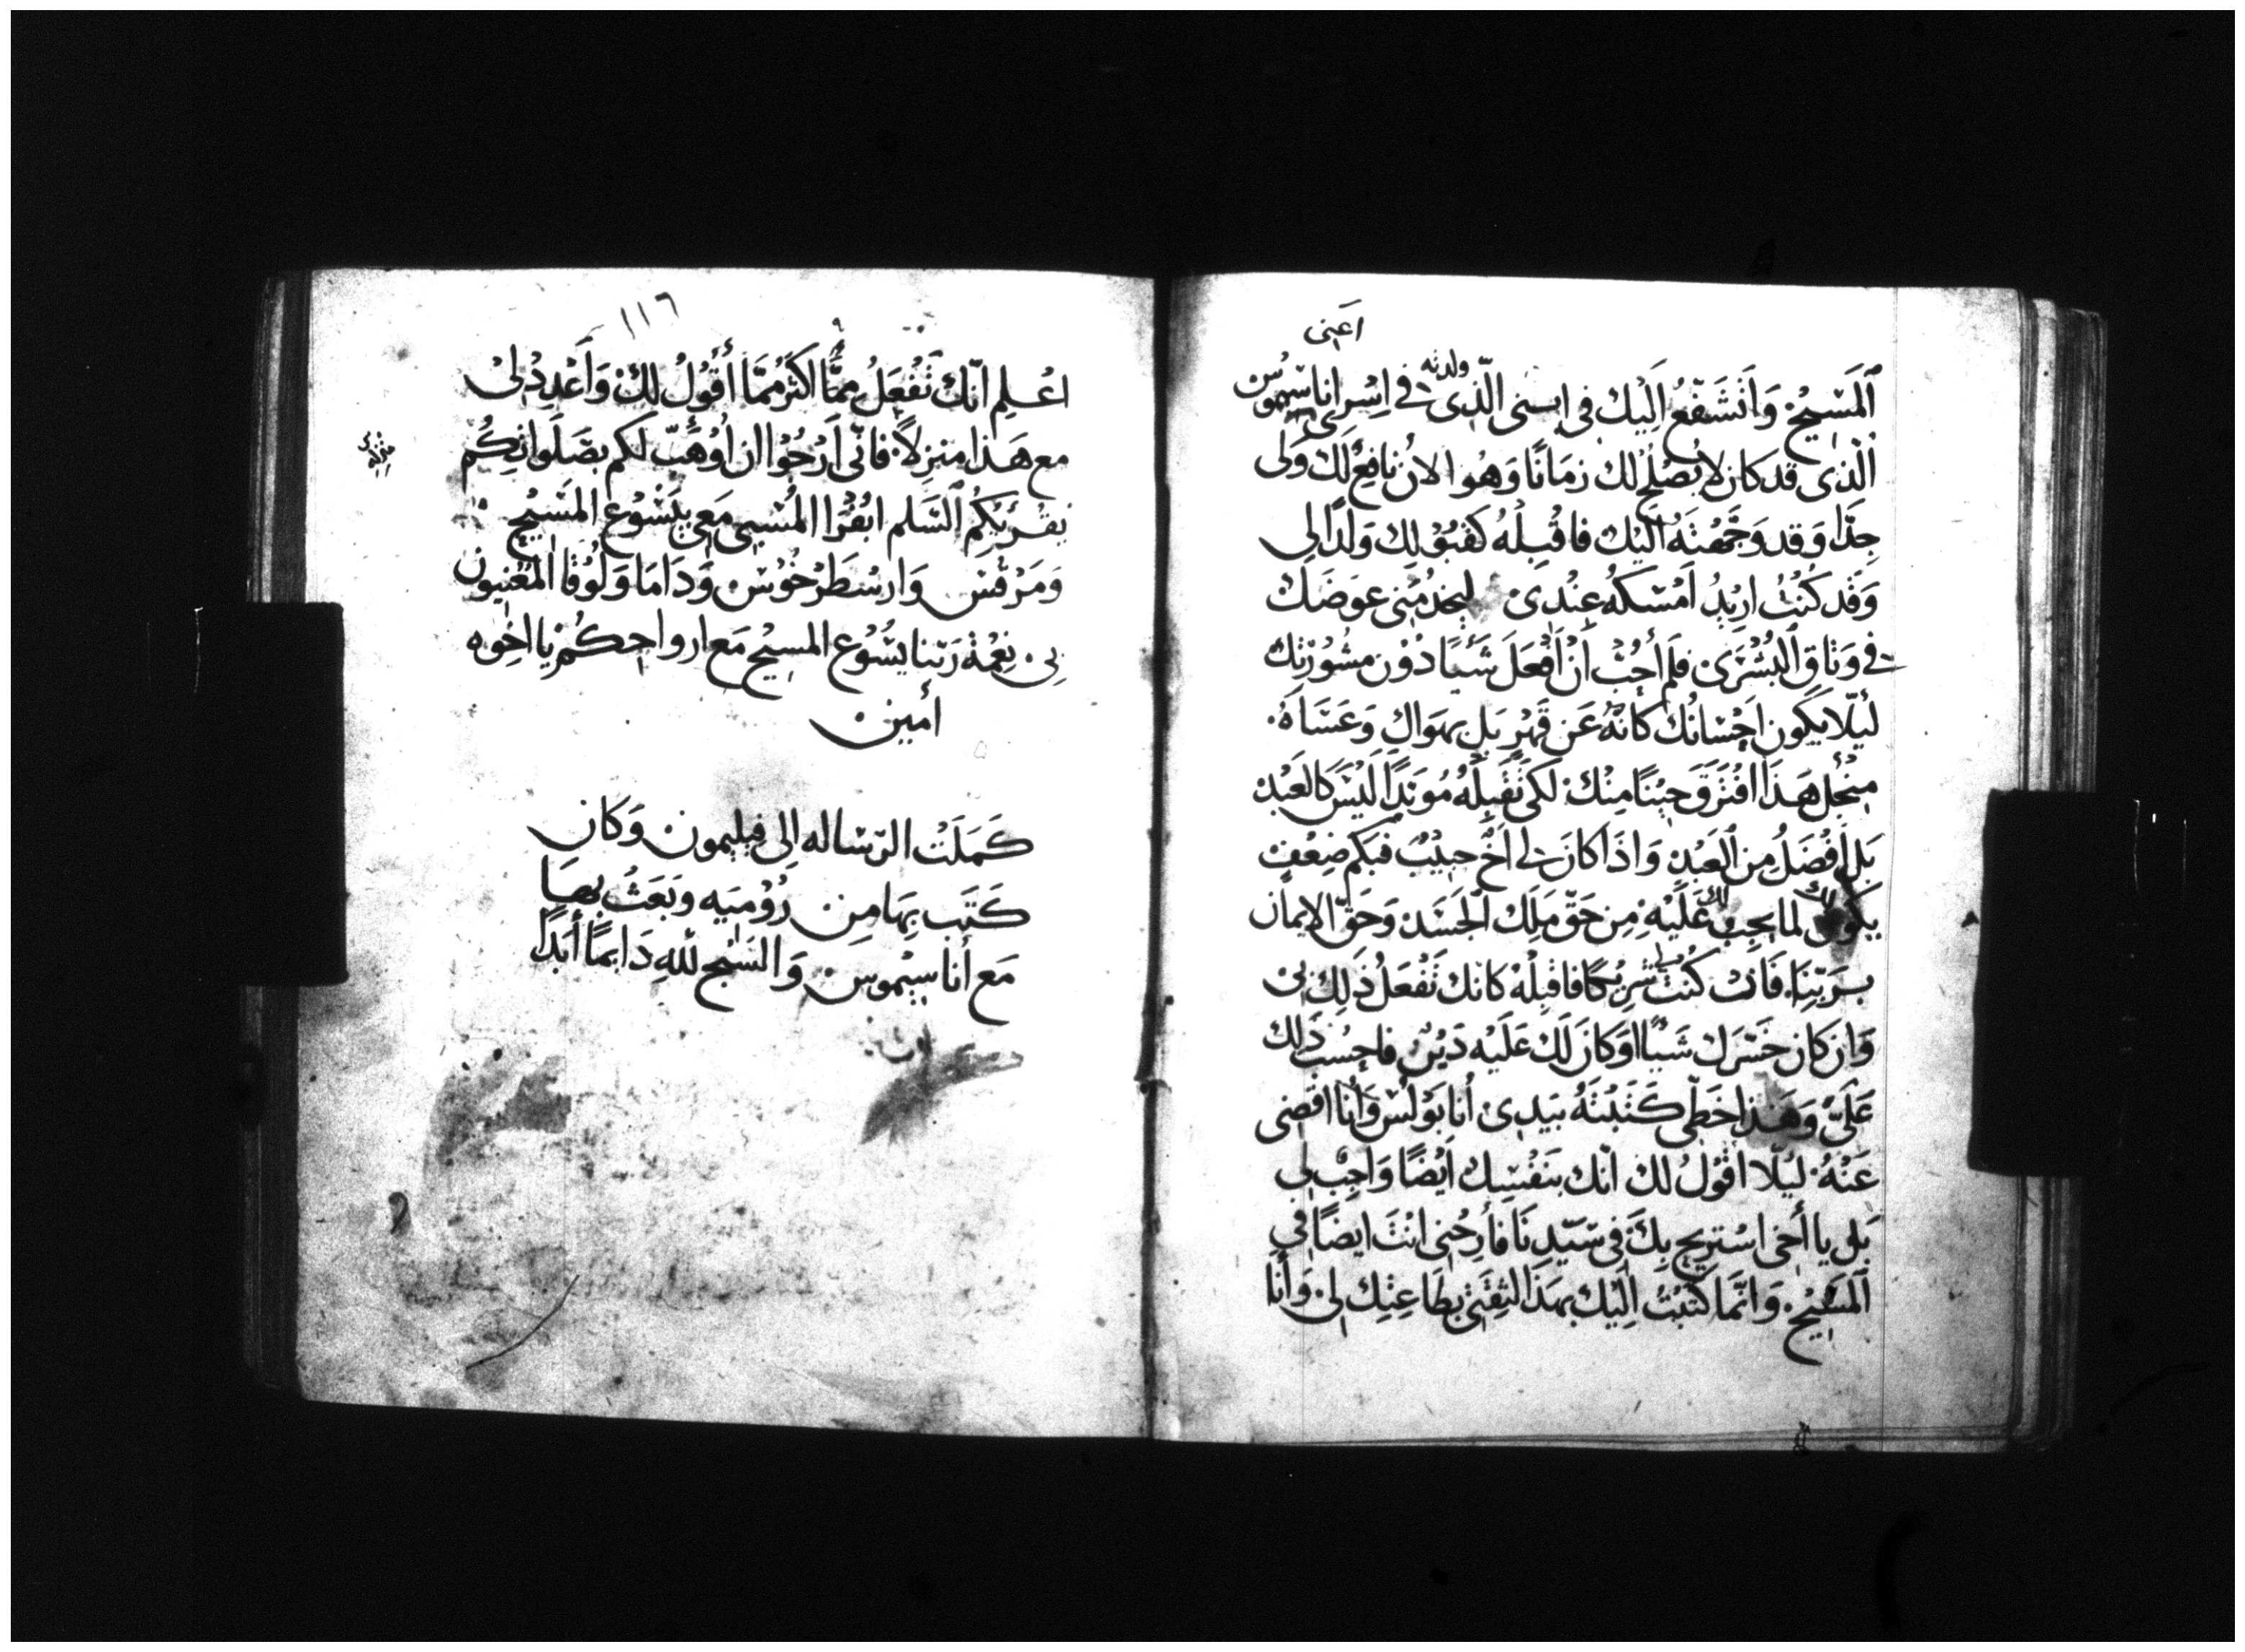 اعنى
ٱلمَسِيْح وَاَتشَفّعُ اِلَيك فى ابنى الّذى ولدته فى اِسْرى اناسِيموُس
ٱلّذى قد كان لا يصْلحُ لك زمَانًا وَهُوا الانَ نافِعٌ لك وَلى
جِدًّا وَقد وَجّهْتهُ اليْك فاقْبِلْهُ كقبُوْلِك وَلدًا لِى
وَقَد كُنْتُ ارِيْدُ اَمْسَكهُ عِنْدِى لِيخدُمَنى عوَضَكَ
فى وَثاقِ البُشْرَى فلَم أُحِبّ اَنْ اَفعَلَ شَيًا دُوْن مشُوْرَتك
ليَلّا يكون احْسَانُك كانهُ عَن قَهْرٍ بَل بهوَاك وَعَسَاهُ
مِنْ اجْل هَذَا افتَرَقَ حِيْنًا مِنْك لكى تقْبلهُ مُوَبدًا لَيْسَ كالعَبْد
بَل افْضَلُ مِن العَبْد وَاذَا كانَ لى اخٌ حبيْبٌ فبكم ضِعْفٍ
يكون لك لما يجبُ لك عَلَيْهِ مِن حَقّ مَلِك الجَسَد وَحَقّ الايمان
برَبّنا فَان كُنْتُ لك شَرِيْكًا فاقبلْهُ كانك تَفْعَلُ ذَلِك بى
وَان كان خسَرك شَيْيًا اوكانَ لَكَ عَلَيْه دَيْنٌ فاحسِبْ ذَلك
عَلَىّ وَهَذا خَطّى كتَبْتهُ بيَدِى أنا بَوْلُسْ وَأنا اقضى
عَنْهُ ليْلّا اقُوْلُ لك انّك بنَفْسِك اَيْضًا وَاجِبٌ لى
بَل يا أخى اسْترِيح بِكَ فى سَيّدِنَا فأرِحْنى انْتَ ايضًا فى
ٱلمَسِيْح وَانّمَا كَتبْتُ اِلَيْك بهَذَا لثِقَتى بطَاعِتِك لِى وَأنا
١١٦
اعْلم انّك تَفْعَلُ ممَّا اكثَرُ ممَّا أقُولُ لكَ وَأعْدِدْ لى
مع هَذا منزلاً فانّى اَرْجُوا ان أوْهَبّ لكم بصَلَواتِكُم
يقْرِيْكُم السّلم ابَفْرَا المُسْبى مَعِى بيَسُوْع المَسِيْح
وَمَرْقس وَارسْطَرْخُوْس وَدَامَا وَلُوْقا المُعْنِيون
بى نِعْمَة رَبّنا يسُوْع المسِيْح مَع ارواحِكُم يا اخِوه
أمين
كَمَلَتْ الرّسَاله اِلى فيليمون وَكان
كَتَب بِهَا مِن رُوْميَه وَبَعَثُ بها
مَع أناسِيْموس وَالسّبْح للهِ دَايمًا أبَدًا